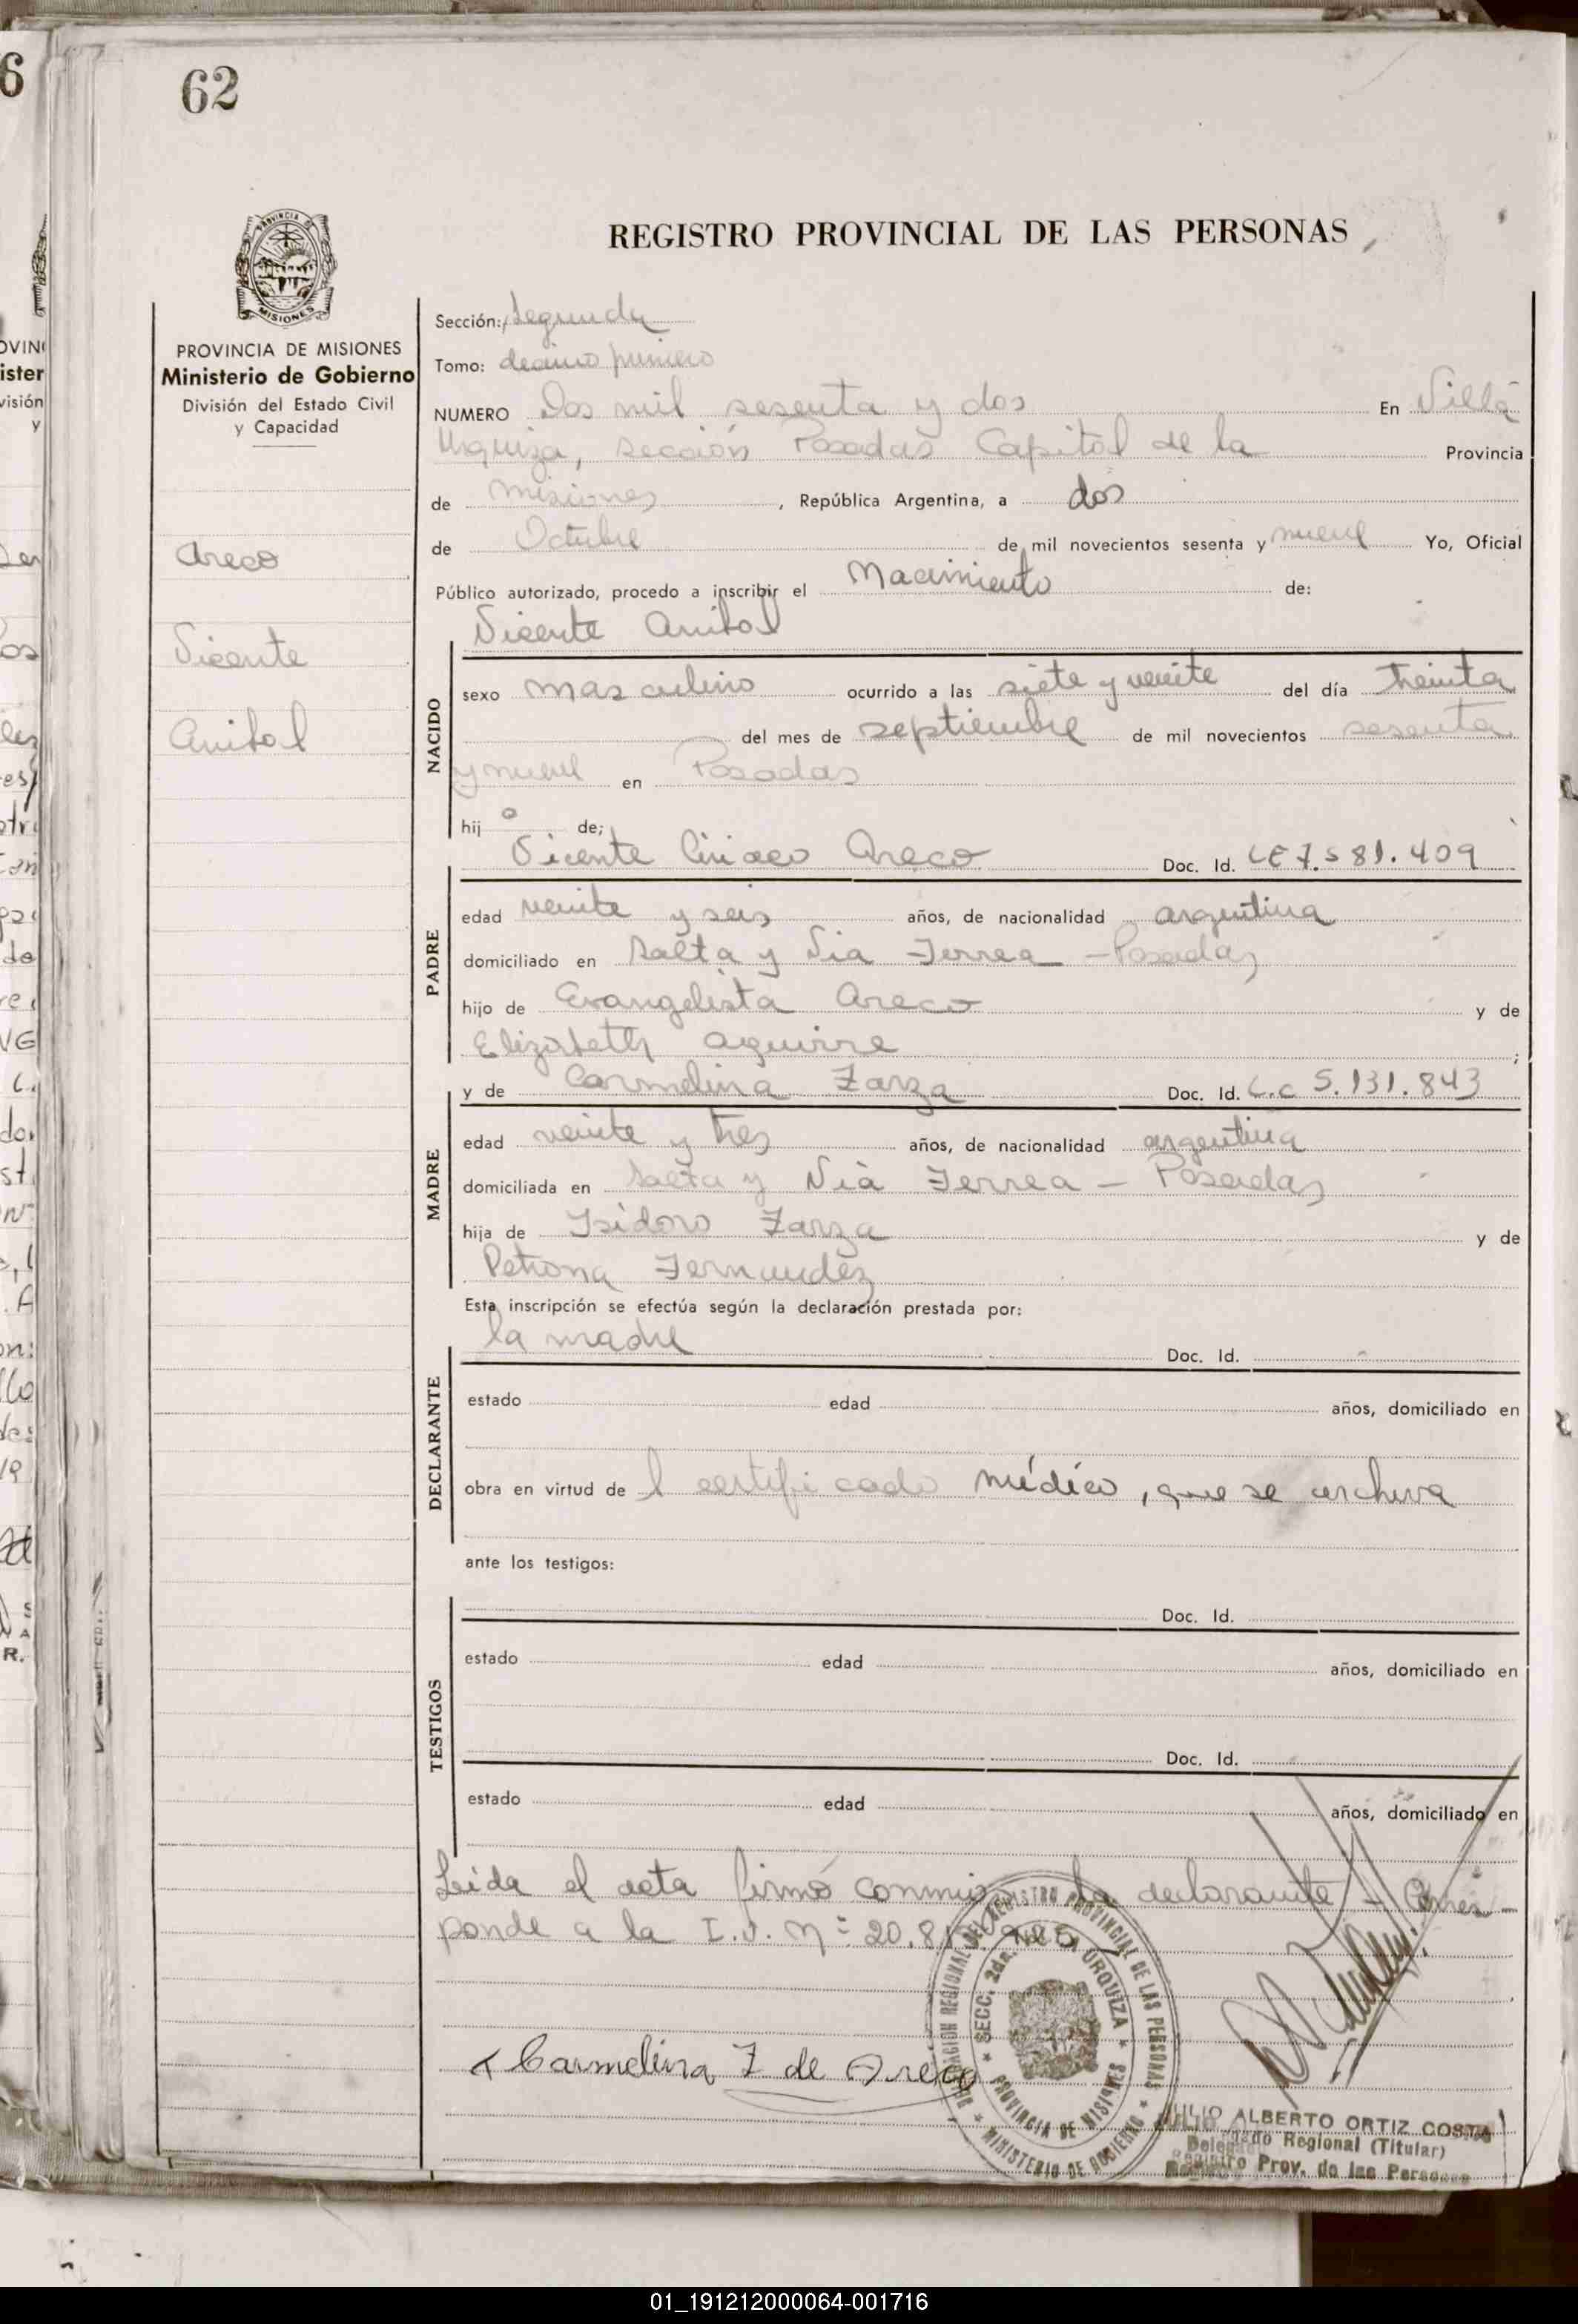 62
REGISTRO PROVINCIAL DE LAS PERSONAS
PROVINCIA DE MISIONES
Ministerio de Gobierno
División del Estado Civil
y Capacidad
Areco
Vicente
Anibal
Sección: Segunda
Tomo: decimo primero
NUMERO Dos mil sesenta y dos En Villa
Urquiza, sección Posadas Capital de la Provincia
de Misiones, República Argentina, a dos
de Octubre de mil novecientos sesenta y nueve Yo, Oficial
Público autorizado, procedo a inscribir el Nacimiento de:
Vicente Anibal
NACIDO
sexo masculino ocurrido a las siete y veinte del día treinta
del mes de septiembre de mil novecientos sesenta
y nueve en Posadas
hijo de;
Vicente Ciriaco Areco Doc. Id. LE 7.581.409
PADRE
edad veinte y seis años, de nacionalidad argentina
domiciliado en Salta y Via Ferrea - Posadas
hijo de Evangelista Areco y de
Elizabeth Aguirre;
y de Carmelina Zarza Doc. Id. L.C 5.131.843
MADRE
edad veinte y tres años, de nacionalidad argentina
domiciliada en Salta y Via Ferrea - Posadas
hija de Isidoro Zarza y de
Petrona Fernandez
Esta inscripción se efectúa según la declaración prestada por:
la madre Doc. Id.
DECLARANTE
estado edad años, domiciliado en
obra en virtud de l certificado médico, que se archiva
ante los testigos:
Doc. Id.
TESTIGOS
estado edad años, domiciliado en
Doc. Id.
estado edad años, domiciliado en
Leida el acta firmó conmigo la declarante - Corres-
ponde a la I.J. Nº 20.8
Carmelina Z de Areco
DELEGACION REGIONAL DEL REGISTRO PROVINCIAL DE LAS PERSONAS
MINISTERIO DE GOBIERNO
SECC. 2da. URQUIZA
PROVINCIA DE MISIONES
JULIO ALBERTO ORTIZ COSTA
Delegado Regional (Titular)
Registro Prov. de las Personas
01_191212000064-001716